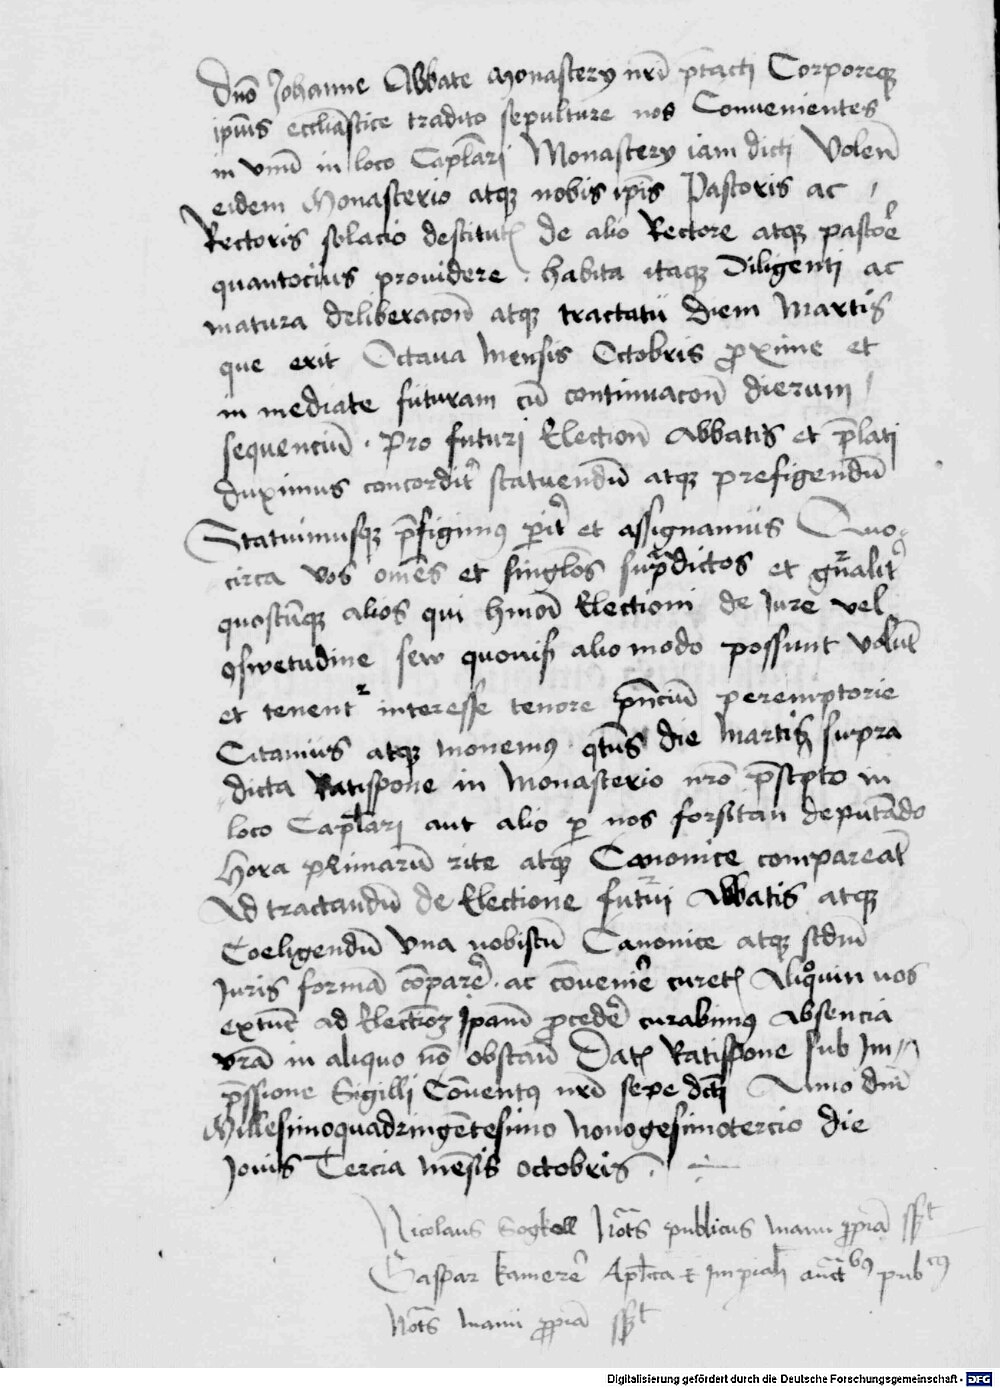 Dnō Johanne Abbate Monastery nr̄i p̄tacti Corporeqꝫ
ip̄ius eccliāstice tradito sepulture nos Conuenientes
in vnū in loco Caplāri Monastery iam dicti Volen̄
eidem Monasterio atqꝫ nobis ip̄is Pastoris ac
Rectoris solacio destitut̄ de alio Rectore atqꝫ pastoē
quantocius prouidere . habita itaqꝫ Diligenti ac
matura deliberacōn atqꝫ tractatū diem Martis
que erit Octaua Mensis Octobris ꝓxime et
in mediate futuram cū continuacōn dierum
sequenciū . Pro futuri Election̄ Abbatis et p̄lati
duximus concordit̄ statuendū atqꝫ prefigendū
Statuimusqꝫ p̄figimꝯ pit̄ et assignamus Quo-
circa vos omēs et singlōs supradictos et gn̄ralit̄
quoscūqꝫ alios qui hmōi Electioni de Jure vel
ꝯswetudine sew quouis alio modo possunt volūt
et tenentr interesse tenore pn̄ciū peremptorie
Citamus atqꝫ monemꝯ qtūs die Martis supra
dicta Ratispone in Monasterio nrō p̄scpto in
loco Caplāri aut alio ꝑ nos forsitan deputādo
Hora primarū rite atqꝫ Canonice compareāt
Ad tractandū de Electione futuri Abbatis atqꝫ
Coeligendū vna nobiscū Canonice atqꝫ scdm̄
Juris formā cōparē . ac cōueniē curet̄ Alioquin nos
extūc ad Electioꝫ Ip̄am ꝓcedē curabimꝯ Absencia
vrā in aliquo nō obstan̄ Dat̄ Ratispone sub Im-
p̄ssione Sigilli Cōuentꝯ nr̄i sepe dcti Anno dn̄i
Millesimoquadringētesimo Nonogesimotercio die
Jouis Tercia mēsis octobris .
Nicolaus Notās publicus manu ꝓpriā sst
Caspar kamerē Aplīca et Imꝑiali auctbꝯ pubcꝯ
Notās manu ꝓpriā sst
Digitalisierung gefördert durch die Deutsche Forschungsgemeinschaft - DFG